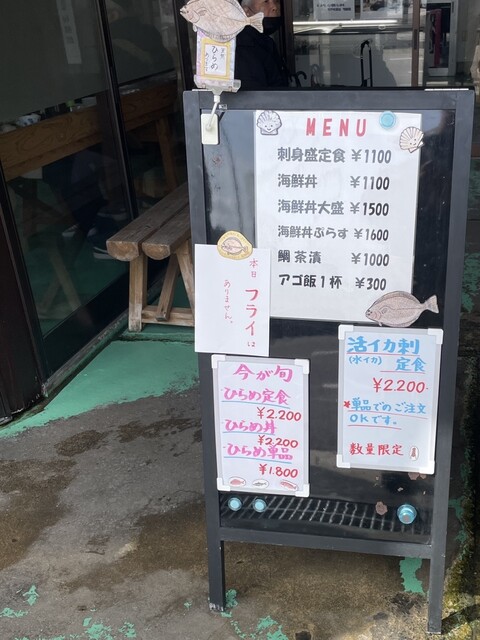 ひらめ
MENU
刺身盛定食 ¥1100
海鮮丼 ¥1100
海鮮丼大盛 ¥1500
海鮮丼ぷらす ¥1600
鯛茶漬 ¥1000
アゴ飯1杯 ¥300
本日
フライは
ありません。
今が旬
ひらめ定食
¥2.200
ひらめ丼
¥2.200
ひらめ単品
¥1.800
活イカ刺
(水イカ) 定食
¥2.200-
★単品でのご注文
OKです。
数量限定